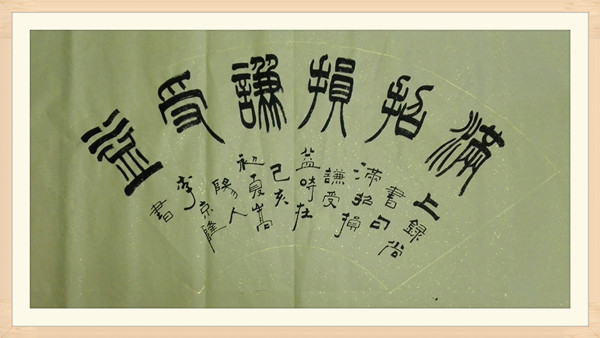 滿招損謙受益
上録尚
書曰
滿招損
謙受
益時在
己亥
初夏嵩
陽人
李京隆
書